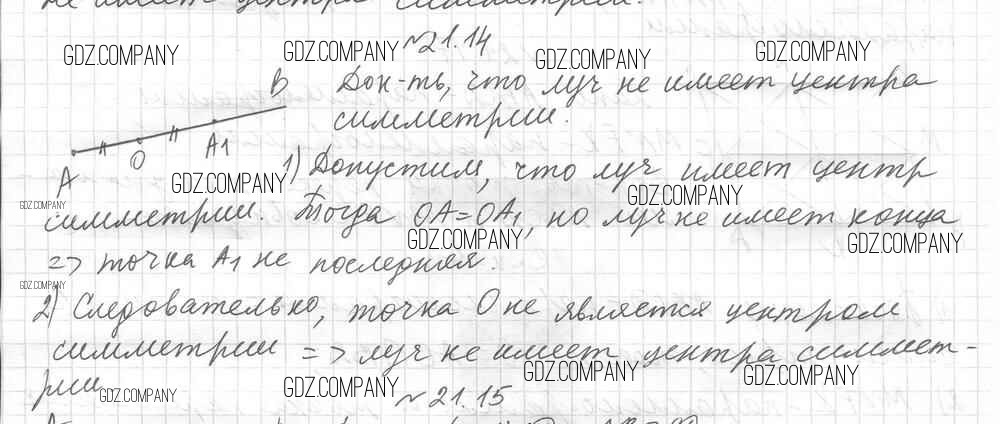 не имеет центра симметрии.
№21.14
Док-ть, что луч не имеет центра
симметрии.
B
A O A1
1) Допустим, что луч имеет центр
симметрии. Тогда OA=OA1, но луч не имеет конца
=> точка A1 не последняя.
2) Следовательно, точка O не является центром
симметрии => луч не имеет центра симмет-
рии
№21.15
GDZ.COMPANY
GDZ.COMPANY
GDZ.COMPANY
GDZ.COMPANY
GDZ.COMPANY
GDZ.COMPANY
GDZ.COMPANY
GDZ.COMPANY
GDZ.COMPANY
GDZ.COMPANY
GDZ.COMPANY
GDZ.COMPANY
GDZ.COMPANY
GDZ.COMPANY